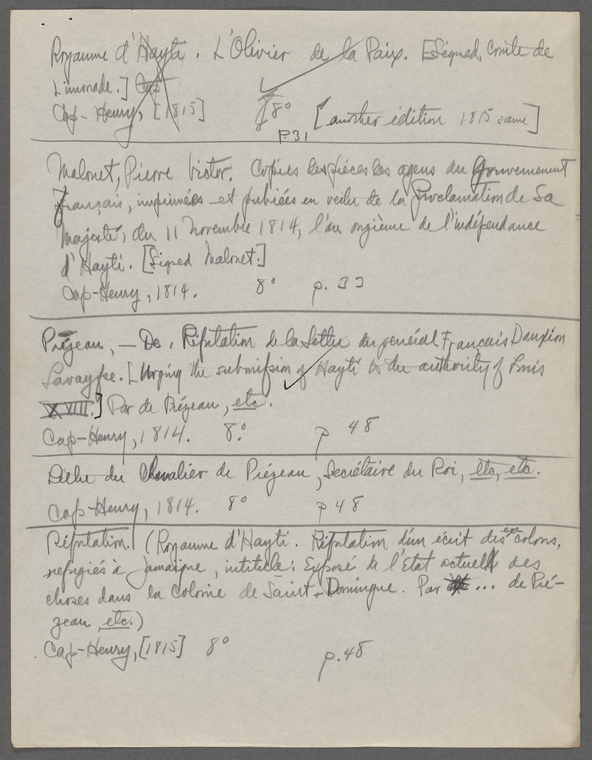 Royaume d'Hayti. L'Olivier de la Paix. [Signed, Comte de
Limonade.] Cap
Cap-Henry, [1815] 8° [another édition 1815 same]
P31
Malouet, Pierre Victor. Copies des pièces des agens du Gouvernement
Français, imprimées et publiées en vertu de la Proclamation de Sa
Majesté, du 11 Novembre 1814, l'an onzième de l'indépendance
d'Hayti. [Signed Malouet.]
Cap-Henry, 1814. 8° p. 33
Prézeau, — De. Réfutation de la lettre du général Français Dauxion
Lavaysse. [Urging the submission of Hayti to the authority of Louis
XVIII.] Par de Prézeau, etc.
Cap-Henry, 1814. 8° p 48
du Chevalier de Prézeau, Secrétaire du Roi, etc, etc.
Cap-Henry, 1814. 8° p 48
Réfutation. (Royaume d'Hayti. Réfutation d'un écrit des ex colons,
refugiés à Jamaïque, intitulé: Exposé de l'Etat actuel des
choses dans la Colonie de Saint-Domingue. Par ... de Pré-
zeau, etc.)
Cap-Henry, [1815] 8° p.48